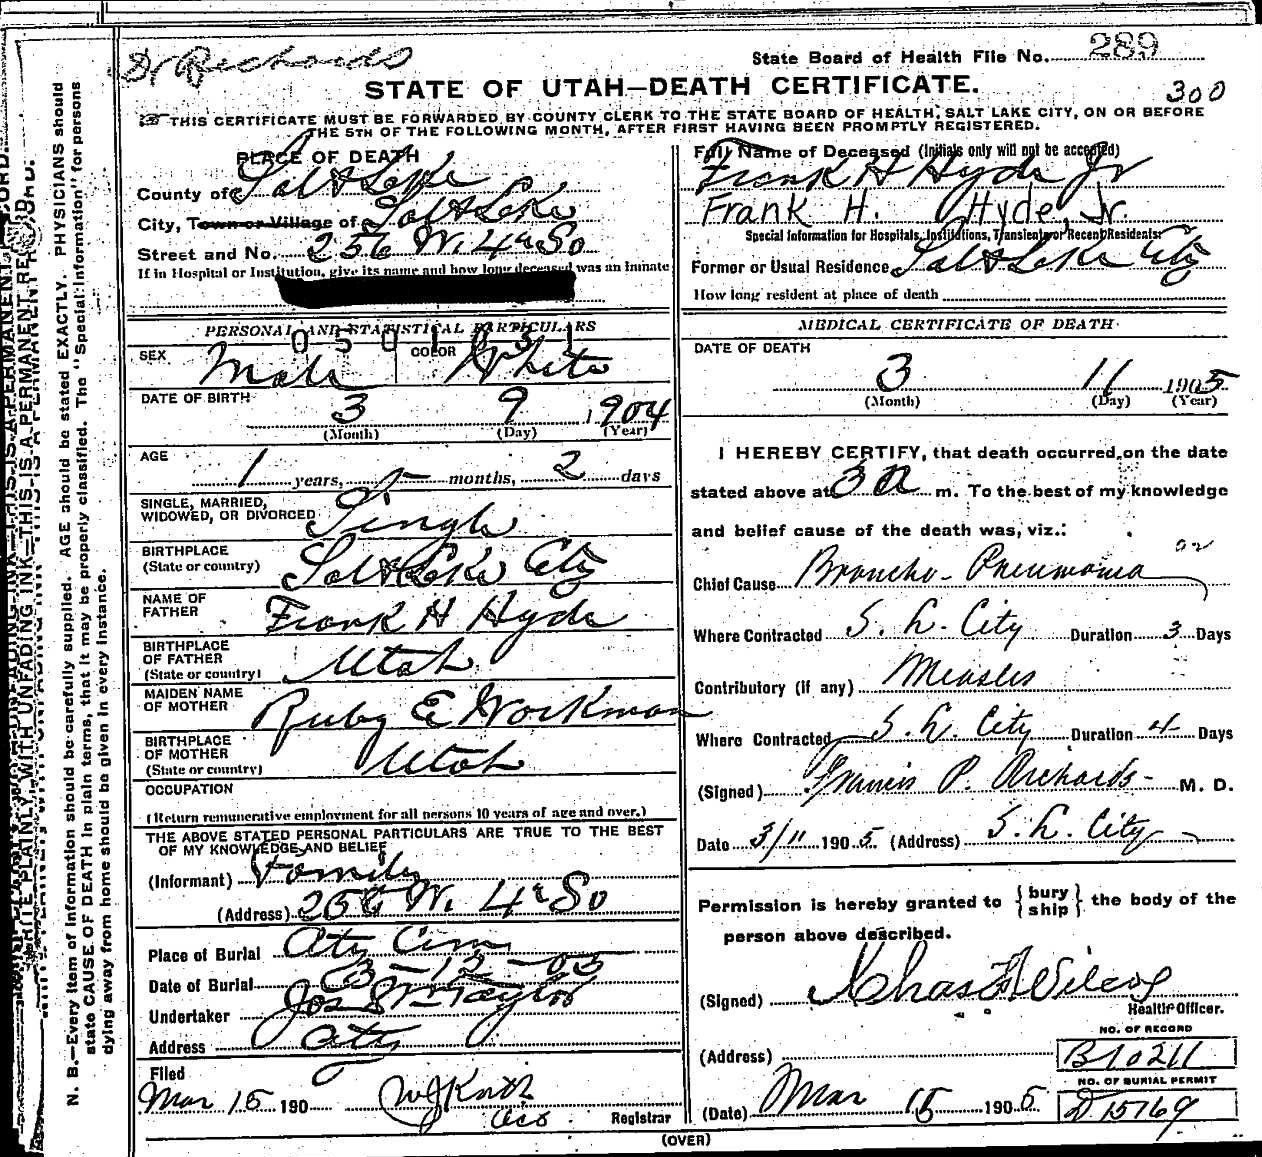 Dr Richards
State Board of Health File No. 289
STATE OF UTAH—DEATH CERTIFICATE.
300
THIS CERTIFICATE MUST BE FORWARDED BY COUNTY CLERK TO THE STATE BOARD OF HEALTH, SALT LAKE CITY, ON OR BEFORE
THE 5TH OF THE FOLLOWING MONTH, AFTER FIRST HAVING BEEN PROMPTLY REGISTERED.
PLACE OF DEATH
County of Salt Lake
City, Town or Village of Salt Lake
Street and No. 256 W. 4th So
If in Hospital or Institution, give its name and how long deceased was an inmate
PERSONAL AND STATISTICAL PARTICULARS
0501031
SEX Male COLOR White
DATE OF BIRTH 3 9 1904
(Month) (Day) (Year)
AGE 1 years, - months, 2 days
SINGLE, MARRIED,
WIDOWED, OR DIVORCED Single
BIRTHPLACE
(State or country) Salt Lake City
NAME OF
FATHER Frank H Hyde
BIRTHPLACE
OF FATHER
(State or country) Utah
MAIDEN NAME
OF MOTHER Ruby E Workman
BIRTHPLACE
OF MOTHER
(State or country) Utah
OCCUPATION
(Return remunerative employment for all persons 10 years of age and over.)
THE ABOVE STATED PERSONAL PARTICULARS ARE TRUE TO THE BEST
OF MY KNOWLEDGE AND BELIEF
(Informant) Family
(Address) 256 W. 4th So
Place of Burial City Cem
Date of Burial 3-12-05
Undertaker Jos E Taylor
Address City
Filed
Mar 15 190
Registrar
Full Name of Deceased (Initials only will not be accepted)
Frank H Hyde Jr
Frank H. Hyde, Jr.
Special Information for Hospitals, Institutions, Transients or Recent Residents:
Former or Usual Residence Salt Lake City
How long resident at place of death
MEDICAL CERTIFICATE OF DEATH
DATE OF DEATH
3 11 1905
(Month) (Day) (Year)
I HEREBY CERTIFY, that death occurred on the date
stated above at 3 a m. To the best of my knowledge
and belief cause of the death was, viz.:
Chief Cause Broncho-Pneumonia
Where Contracted S. L. City Duration 3 Days
Contributory (if any) Measles
Where Contracted S. L. City Duration 4 Days
(Signed) Francis P. Richards M. D.
Date 3/11 1905 (Address) S. L. City
Permission is hereby granted to {bury
ship} the body of the
person above described.
(Signed) Chas F Wilcox
Health Officer.
NO. OF RECORD
(Address) B10211
NO. OF BURIAL PERMIT
(Date) Mar 15 1905 D 15769
(OVER)
N. B.—Every item of information should be carefully supplied. AGE should be stated EXACTLY. PHYSICIANS should
state CAUSE OF DEATH in plain terms, that it may be properly classified. The "Special Information" for persons
dying away from home should be given in every instance.
WRITE PLAINLY, WITH UNFADING INK—THIS IS A PERMANENT RECORD.